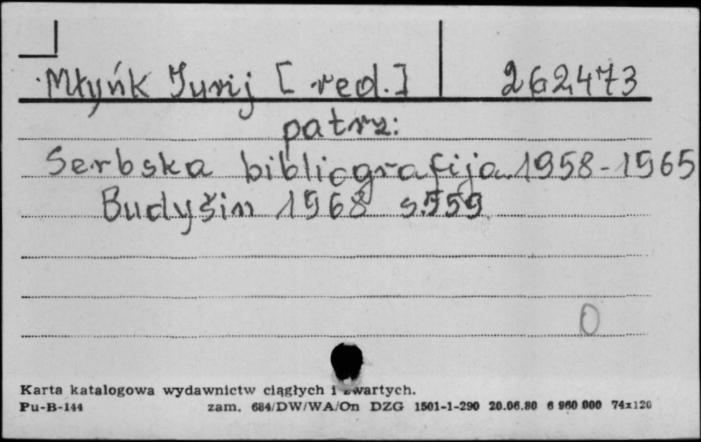 Młyńk Jurij [red.] 262473
patrz:
Serbska bibliografija. 1958-1965
Budyšin 1968 s. 559
0
Karta katalogowa wydawnictw ciągłych i zwartych.
Pu-B-144 zam. 684/DW/WA/On DZG 1501-1-290 20.06.80 6 960 000 74x120